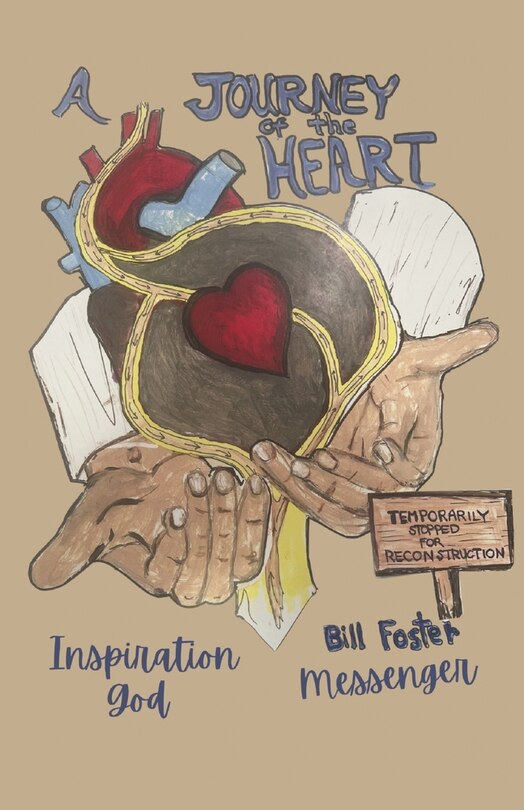 A JOURNEY
of the
HEART
TEMPORARILY
STOPPED
FOR
RECONSTRUCTION
Inspiration
God
Bill Foster
Messenger